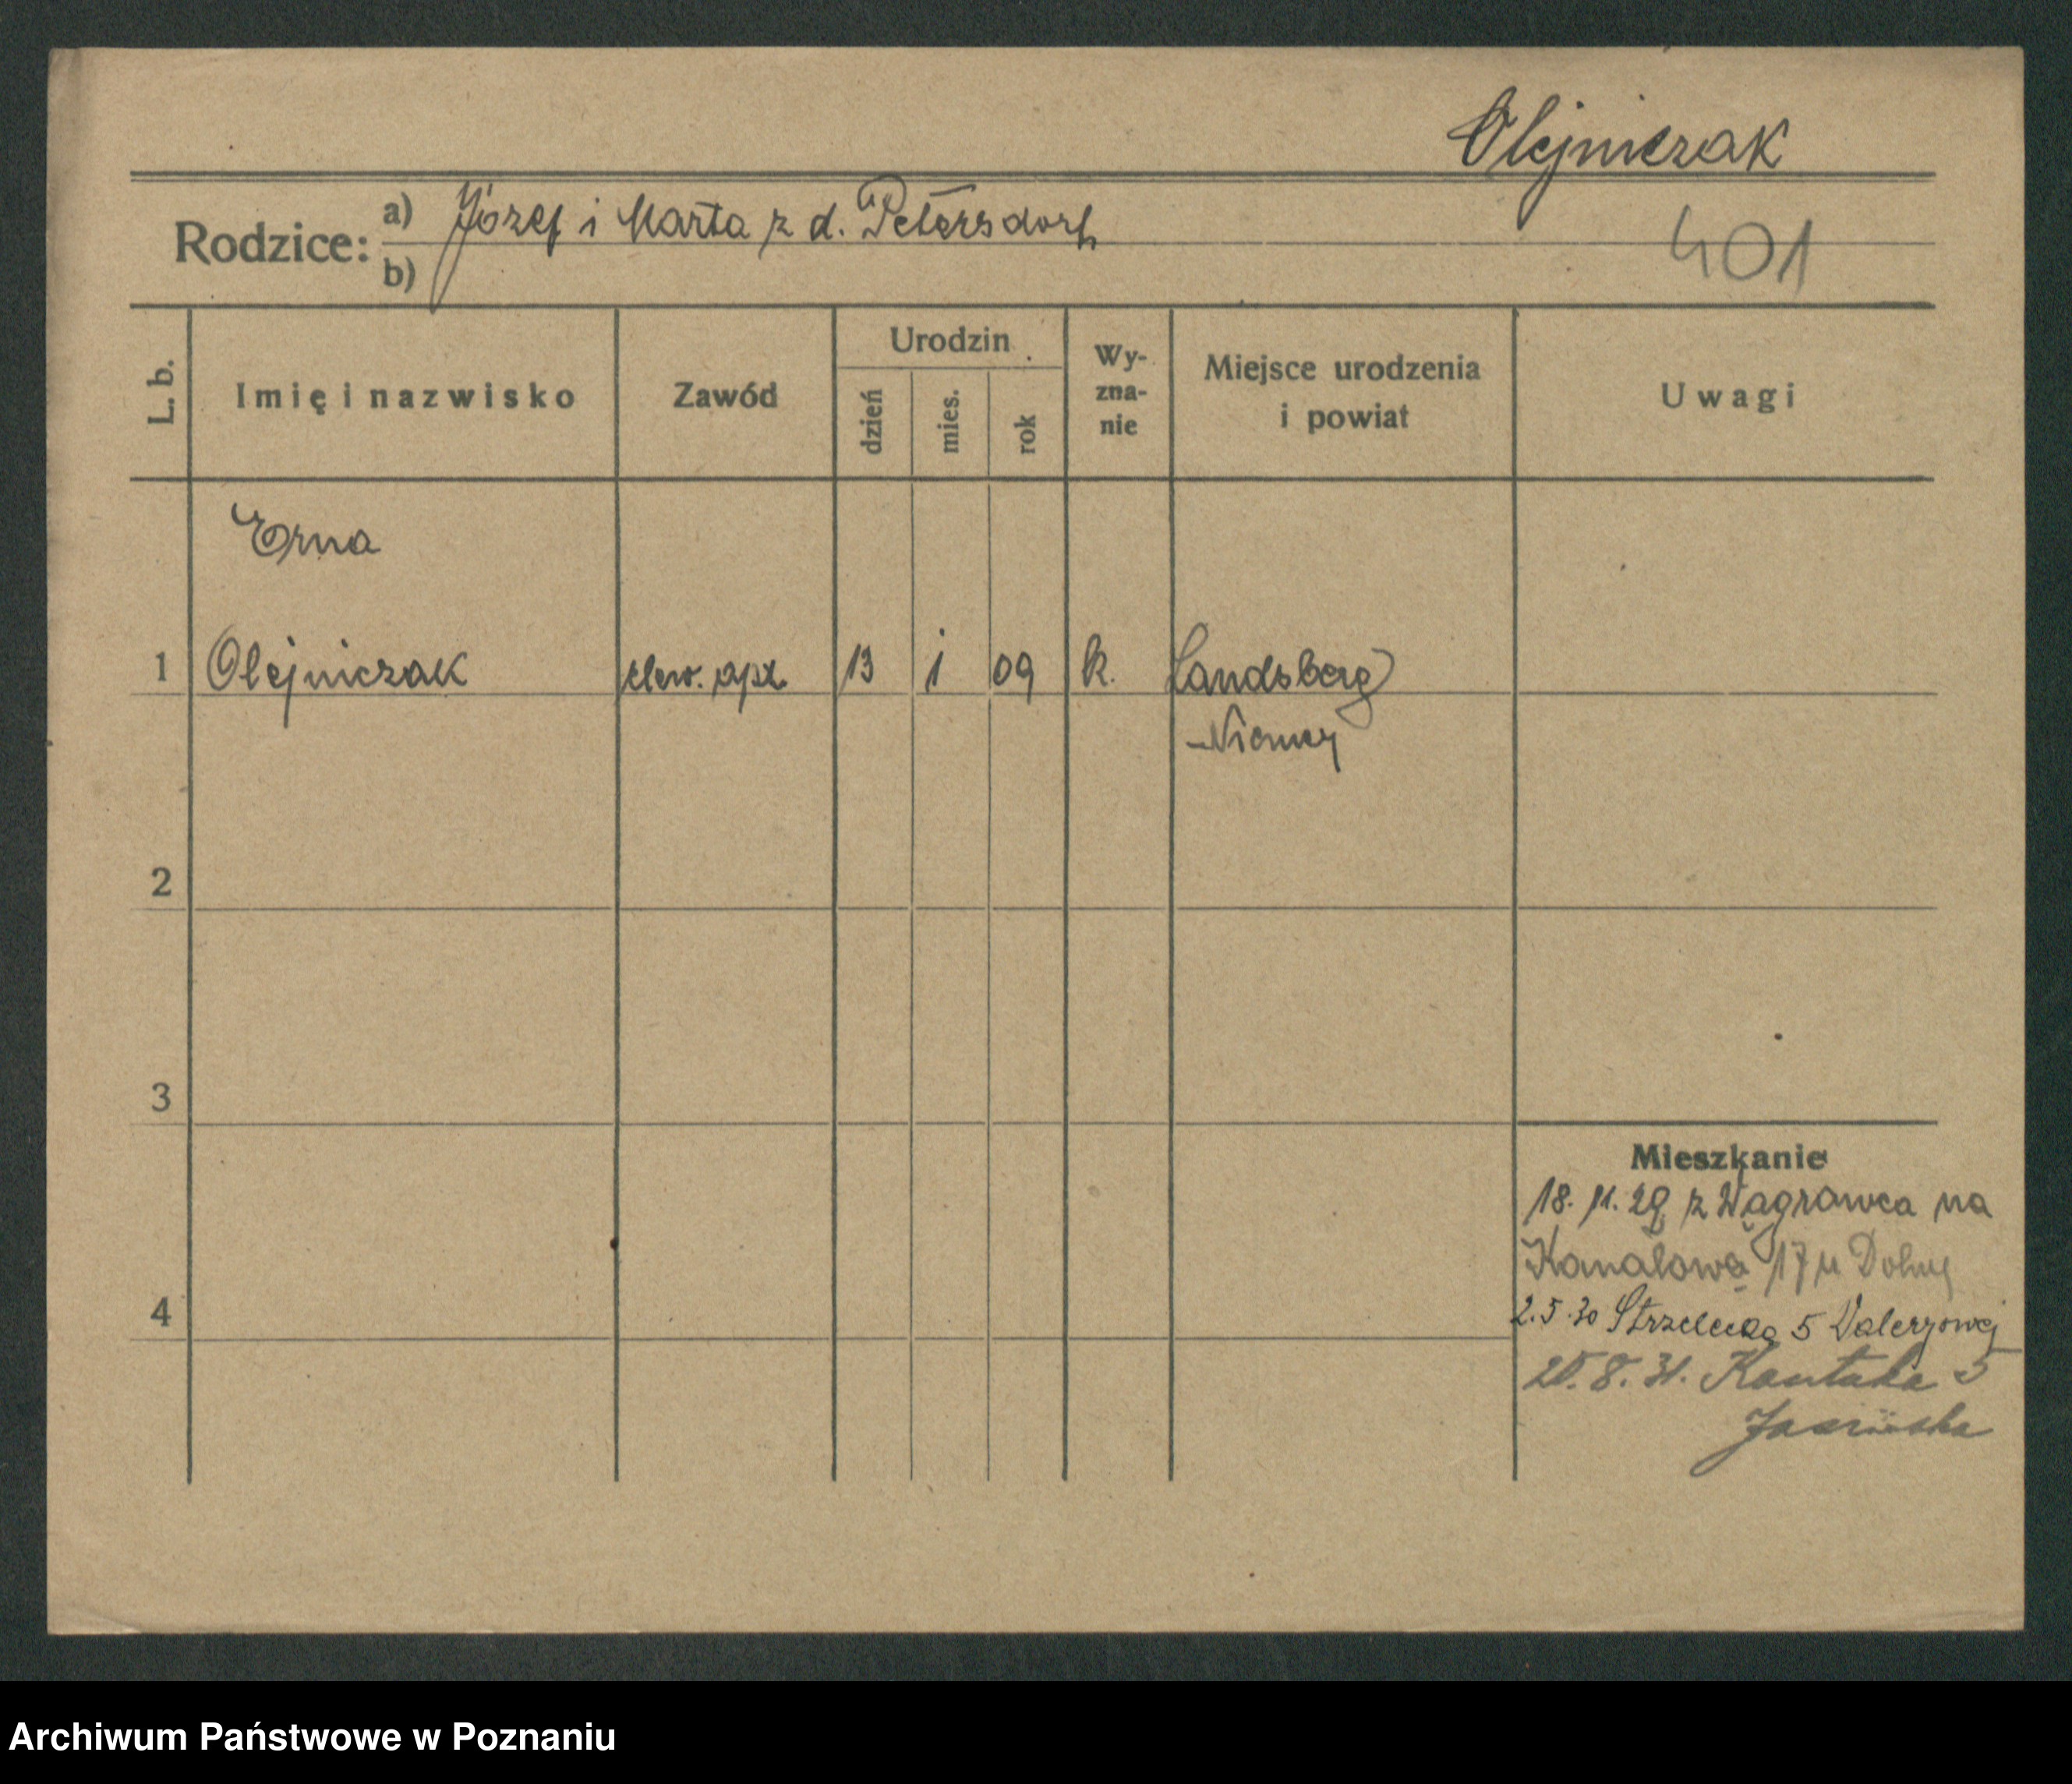 Olejniczak
Rodzice: a) Józef i Marta z d. Petersdorf
b)
401
L. b.
Imię i nazwisko
Zawód
Urodzin
dzień
mies.
rok
Wy-
zna-
nie
Miejsce urodzenia
i powiat
Uwagi
Erna
1 Olejniczak elew. apt. 13 1 09 k. Landsberg
Niemcy
2
3
4
Mieszkanie
18. 11. 29 z Wągrowca na
Kanałową 17 u Dolny
2.5.30 Strzelecką 5 Walerjowej
8. 31. Kantaka 5
Jasińska
Archiwum Państwowe w Poznaniu